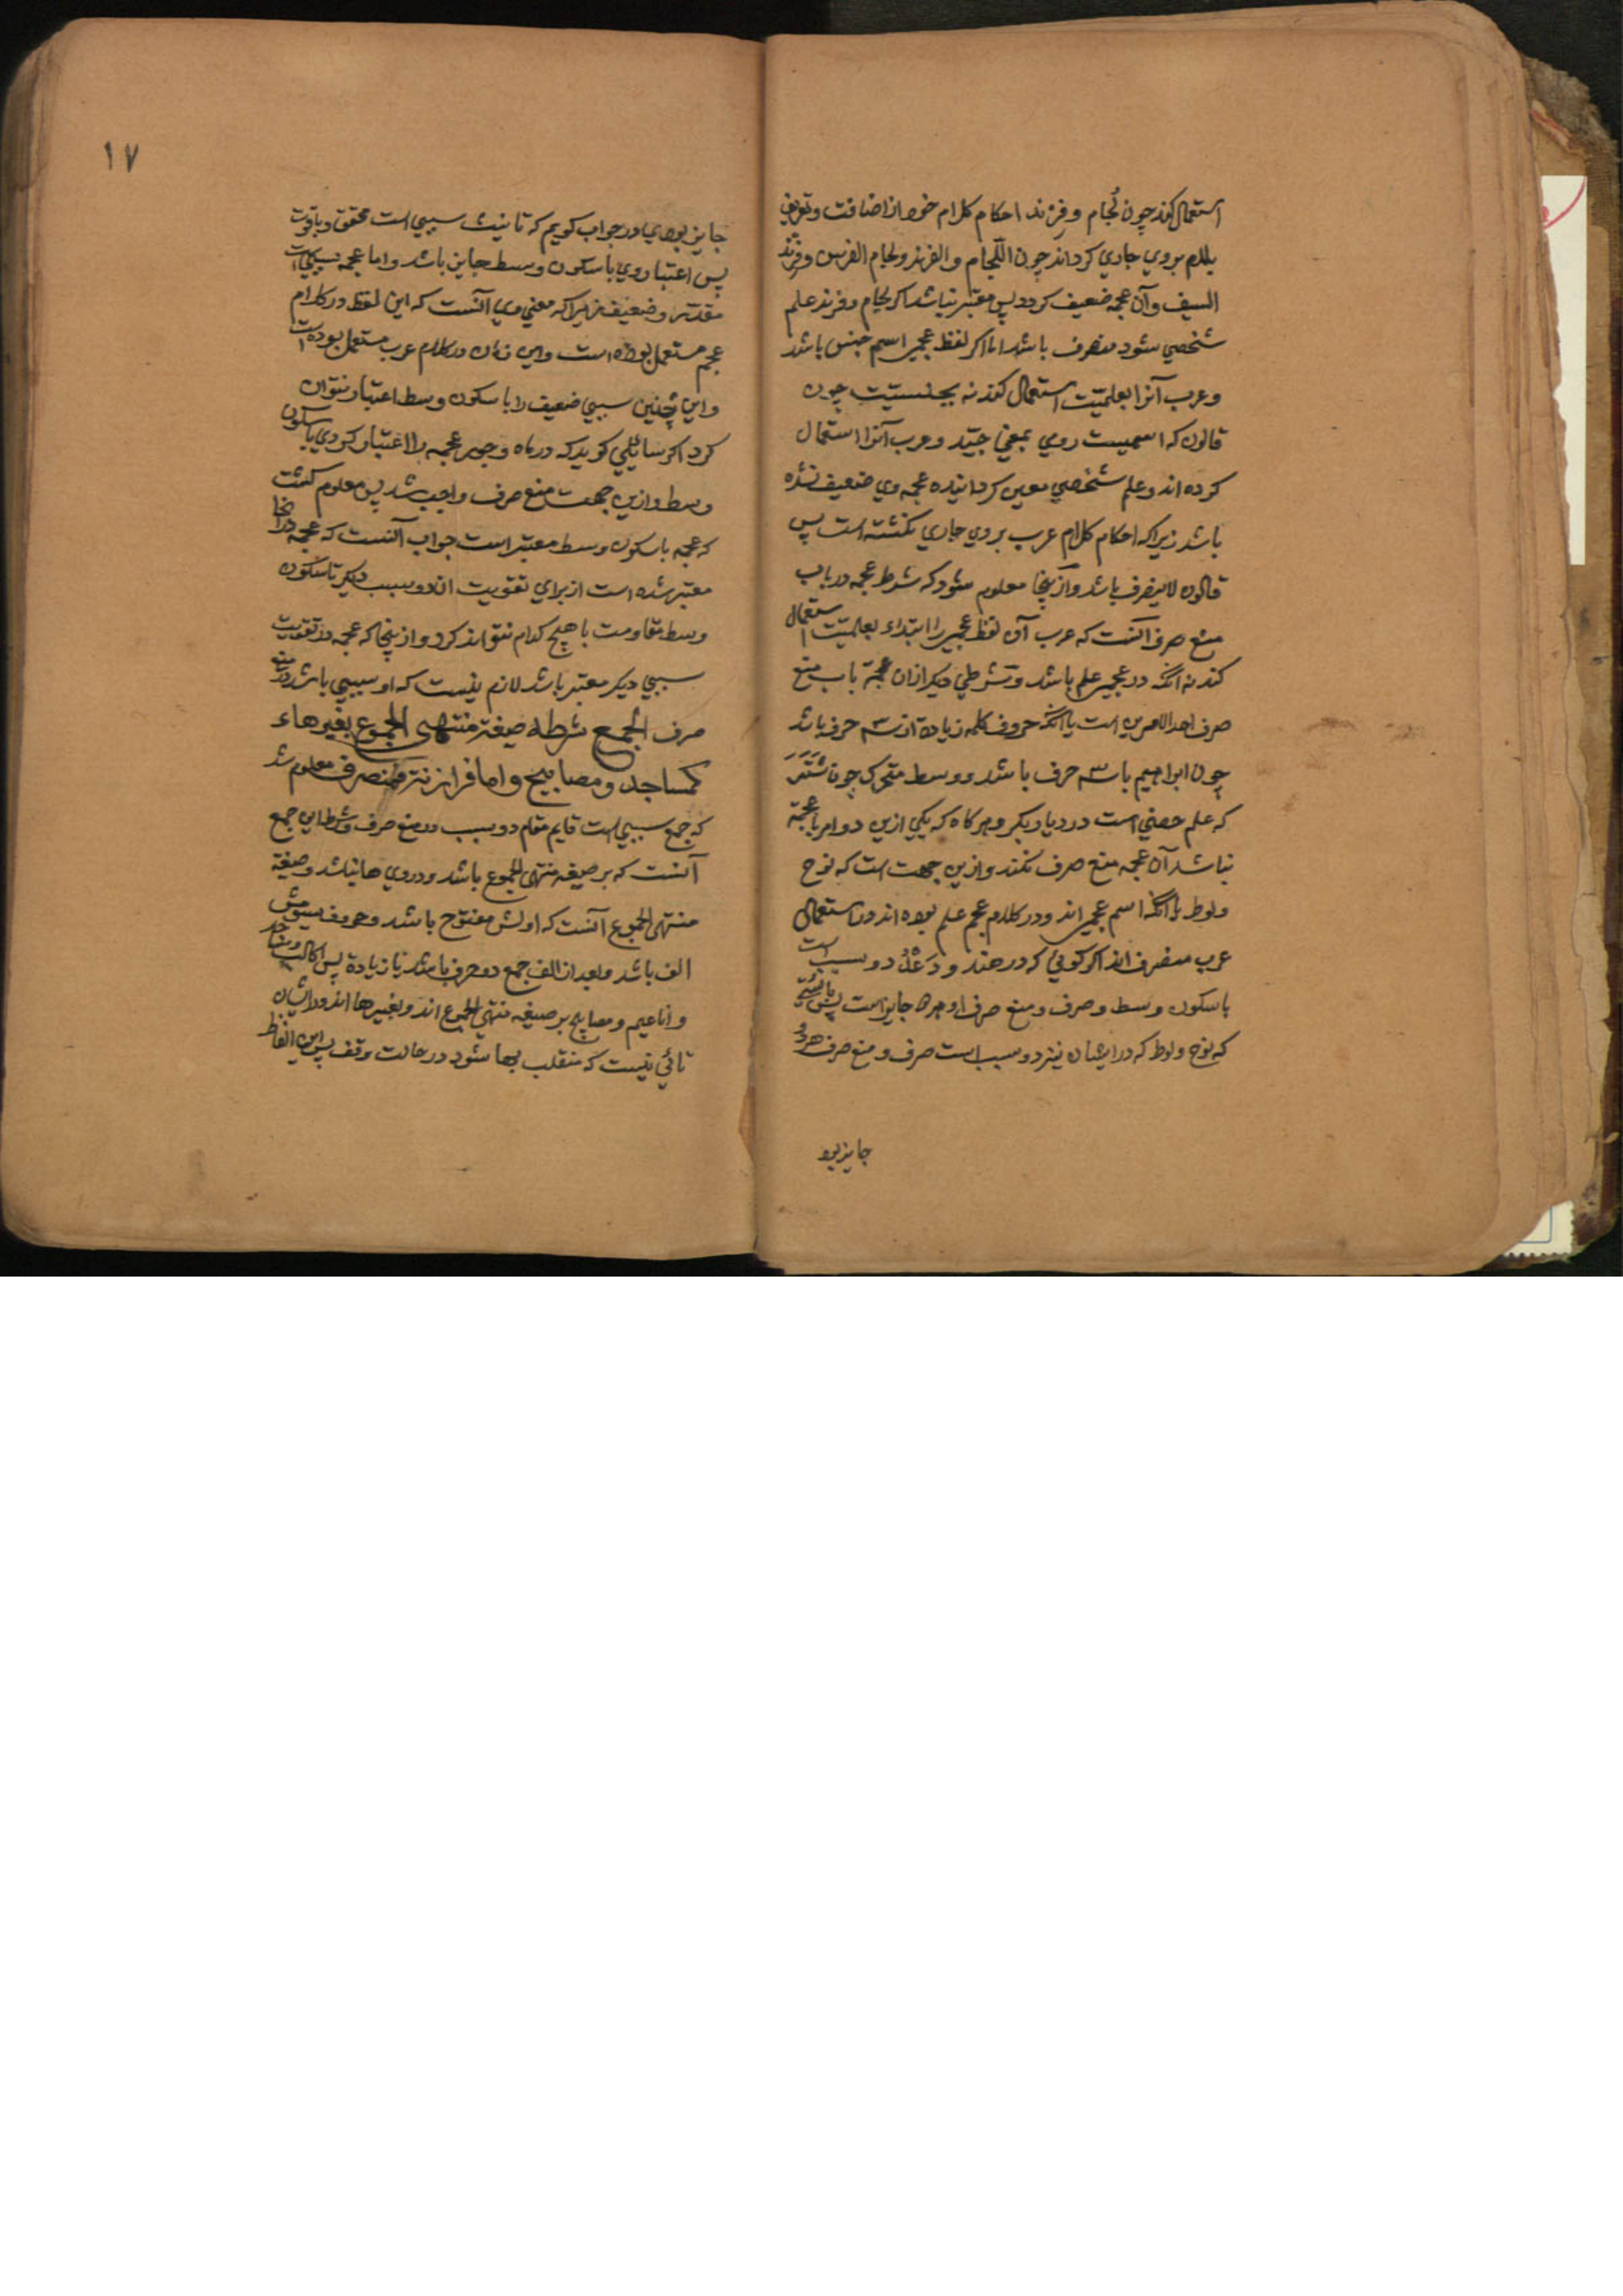 استعمال کند چون لُجام و فرند احکام کلام خود از اضافت و تعریف
بلام بر وی جاری کرداند چون اللّجام و الفرند و لجام الفرس و فرند
السیف و آن عجمه ضعیف کردد پس معتبر نباشد اکر لجام و فرند علم
شخصی شود منصرف باشد اما اکر لفظ عجمی اسم جنس باشد
و عرب آنرا بعلمیّت استعمال کند نه بجنسیّت چون
قالون که اسمیست رومی بمعنی جیّد و عرب آنرا استعمال
کرده اند و علم شخصی معین کردانیده عجمه وی ضعیف نشده
باشد زیرا که احکام کلام عرب بر وی جاری نکشته است پس
قالون لاینصرف باشد و از ینجا معلوم شود که شرط عجمه در باب
منع صرف آنست که عرب آن لفظ عجمی را ابتداء بعلمیّت استعمال
کند نه آنکه در عجمی علم باشد و شرطی دیکر از ان عجمة باب منع
صرف احد الامرین است یا آنکه حروف کلمه زیادة از سه حرف باشد
چون ابراهیم یا سه حرف باشد و وسط متحرک چون شَتَرَ
که علم حصنی است در دیار بکر و هر کاه که یکی ازین دو امر با عجمة
نباشد آن عجمه منع صرف نکند و ازین جهت است که نوح
و لوط با آنکه اسم عجمی اند و در کلام عجم علم بوده اند در استعمال
عرب منصرف اند اکر کویی که در هند و دَعْدُ دو سبب است
با سکون وسط و صرف و منع صرف او هر دو جایز است پس بایستی
که نوح و لوط که در ایشان نیز دو سبب است صرف و منع صرف هر دو
جایز بو
١٧
جایز بودی در جواب کویم که تانیث سببی است محقق و با قوت
پس اعتبار وی با سکون وسط جایز باشد و اما عجمه سببی است
مقدّر و ضعیف زیرا که معنی وی آنست که این لفظ در کلام
عجم مستعمل بوده است و این زمان در کلام عرب مستعمل بوده است
و این چنین سببی ضعیف را با سکون وسط اعتبار نتوان
کرد اکر سایلی کوید که در ماه و جور عجمه را اعتبار کردی با سکون
وسط و ازین جهت منع صرف واجب شد پس معلوم کشت
که عجمه با سکون وسط معتبر است جواب آنست که عجمه در آنجا
معتبر شده است از برای تقویت آن دو سبب دیکر تا سکون
وسط مقاومت با هیچ کدام نتواند کرد و از ینجا که عجمه در تقویت
سببی دیکر معتبر باشد لازم نیست که او سببی باشد در منع
صرف الجمع شرطه صیغة منتهی الجموع بغیر هاء
کمساجد و مصابیح و اما فرازنة فمنصرف معلوم شد
که جمع سببی است قایم مقام دو سبب در منع صرف و شرط این جمع
آنست که بر صیغه منتهی الجموع باشد و در وی ها نباشد و صیغة
منتهی الجموع آنست که اولش مفتوح باشد و حرف سیومش
الف باشد و بعد از الف جمع دو حرف باشد یا زیادة پس اکالب و مساجد
و اناعیم و مصابیح بر صیغه منتهی الجموع اند و بغیر ها اند و در ایشان
تائی نیست که منقلب بها شود در حالت وقف پس این الفاظ